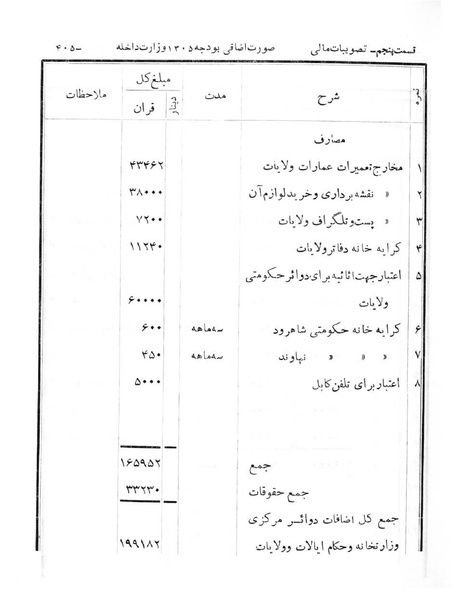 قسمت پنجم ـ تصویبات مالی صورت اضافی بودجه ۱۳۰۵ وزارت داخله ـ۴۰۵
نمره شرح مدت مبلغ کل ملاحظات
قران دینار
مصارف
۱ مخارج تعمیرات عمارات ولایات ۴۳۴۶۲
۲ « نقشه برداری و خرید لوازم آن ۳۸۰۰۰
۳ « پست و تلگراف ولایات ۷۲۰۰
۴ کرایه خانه دفاتر ولایات ۱۱۲۴۰
۵ اعتبار جهت اثاثیه برای دوائر حکومتی
ولایات ۶۰۰۰۰
۶ کرایه خانه حکومتی شاهرود سه ماهه ۶۰۰
۷ « « « نهاوند سه ماهه ۴۵۰
۸ اعتبار برای تلفن کابل ۵۰۰۰
جمع ۱۶۵۹۵۲
جمع حقوقات ۳۳۲۳۰
جمع کل اضافات دوائر مرکزی
وزارتخانه و حکام ایالات و ولایات ۱۹۹۱۸۲